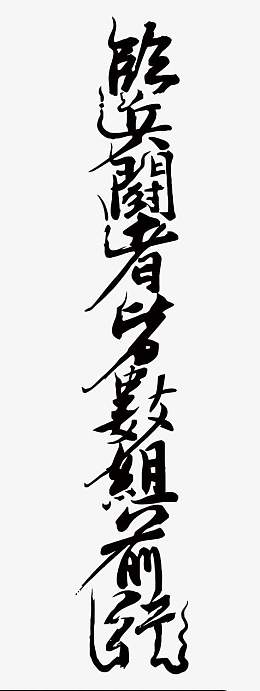 臨兵闘者皆数組前行